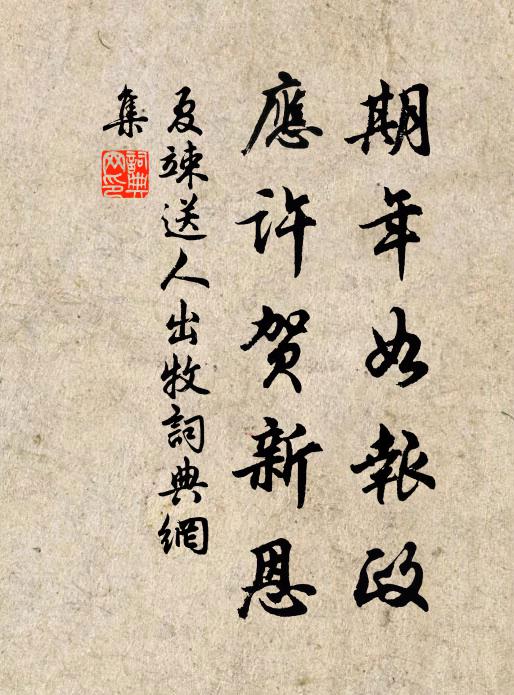 期年如報政
應許賀新恩
夏竦送人出牧詞典網
集
詞典網印